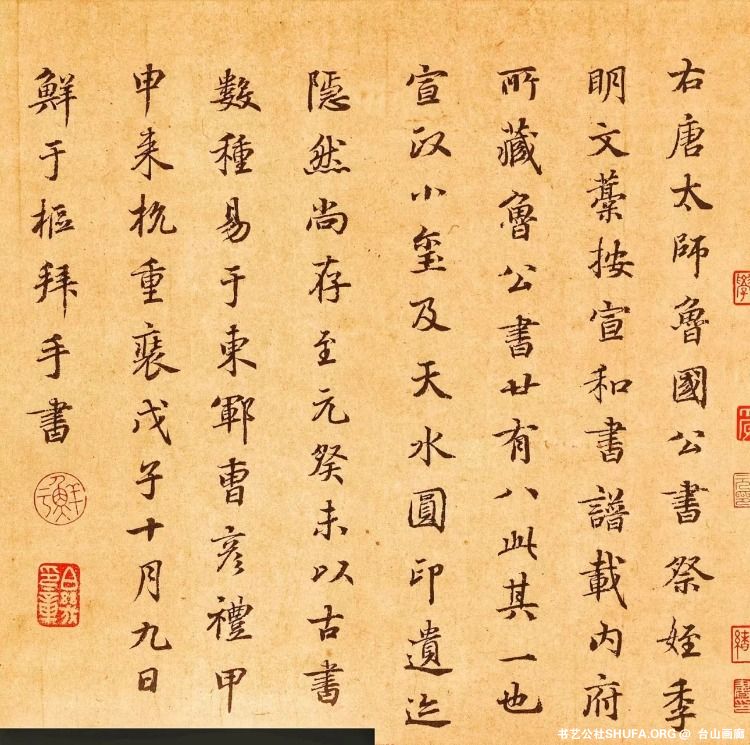 右唐太師魯國公書祭姪季
明文藁按宣和書譜載内府
所藏魯公書廿有八此其一也
宣政小璽及天水圓印遺迹
隱然尚存至元癸未以古書
數種易于東鄆曹彦禮甲
申来杭重裝戊子十月九日
鮮于樞拜手書
书艺公社SHUFA.ORG @ 台山画廊